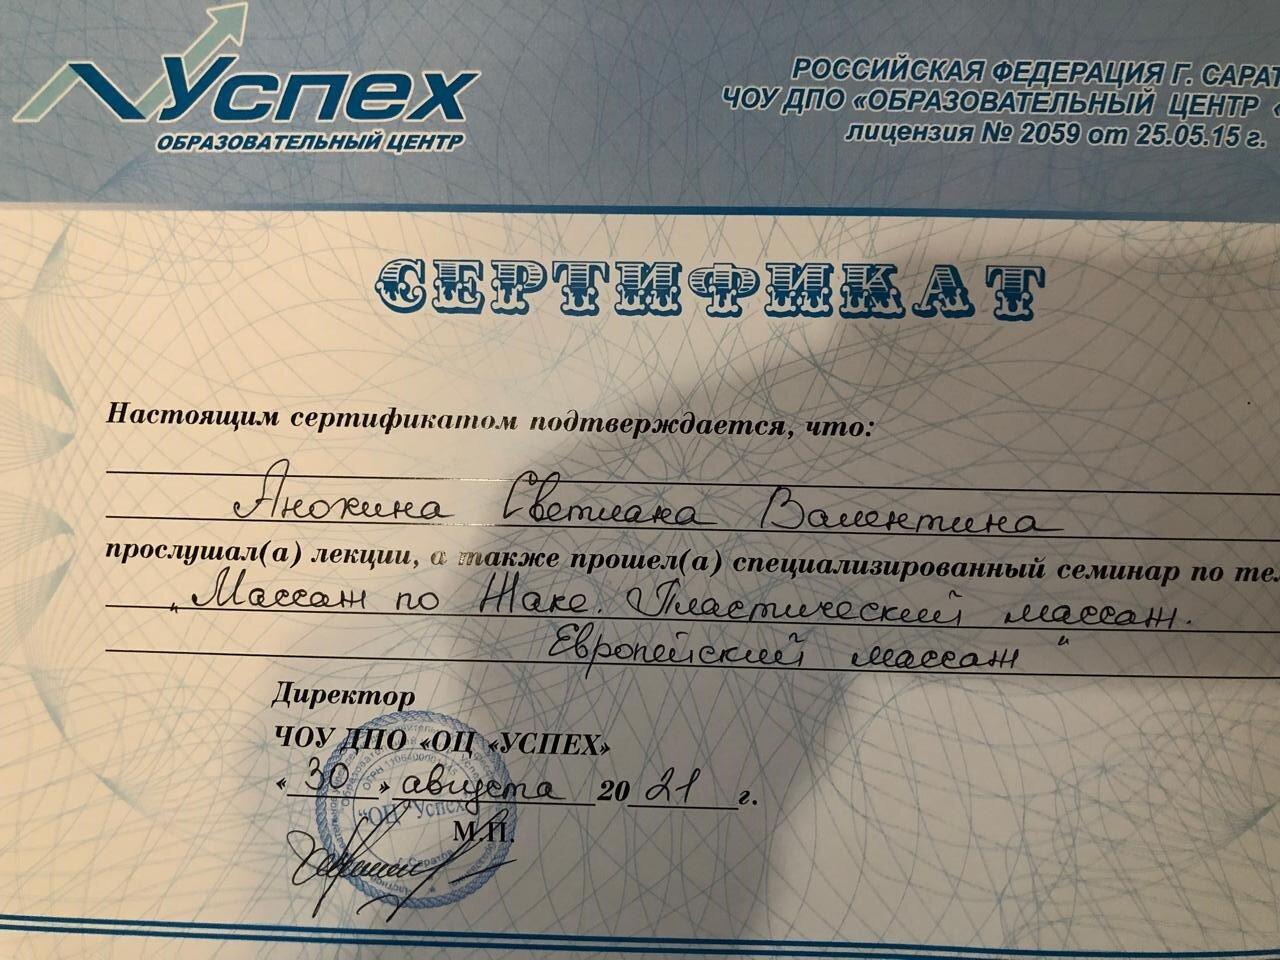 Успех
ОБРАЗОВАТЕЛЬНЫЙ ЦЕНТР
РОССИЙСКАЯ ФЕДЕРАЦИЯ Г. САРАТ
ЧОУ ДПО «ОБРАЗОВАТЕЛЬНЫЙ ЦЕНТР «
лицензия № 2059 от 25.05.15 г.
СЕРТИФИКАТ
Настоящим сертификатом подтверждается, что:
Анохина Светлана Валентина
прослушал(а) лекции, а также прошел(а) специализированный семинар по те
„Массаж по Жаке. Пластический массаж.
Европейский массаж"
Директор
ЧОУ ДПО «ОЦ «УСПЕХ»
«30» августа 2021 г.
М.П.
"ОЦ "Успех
г. Саратов